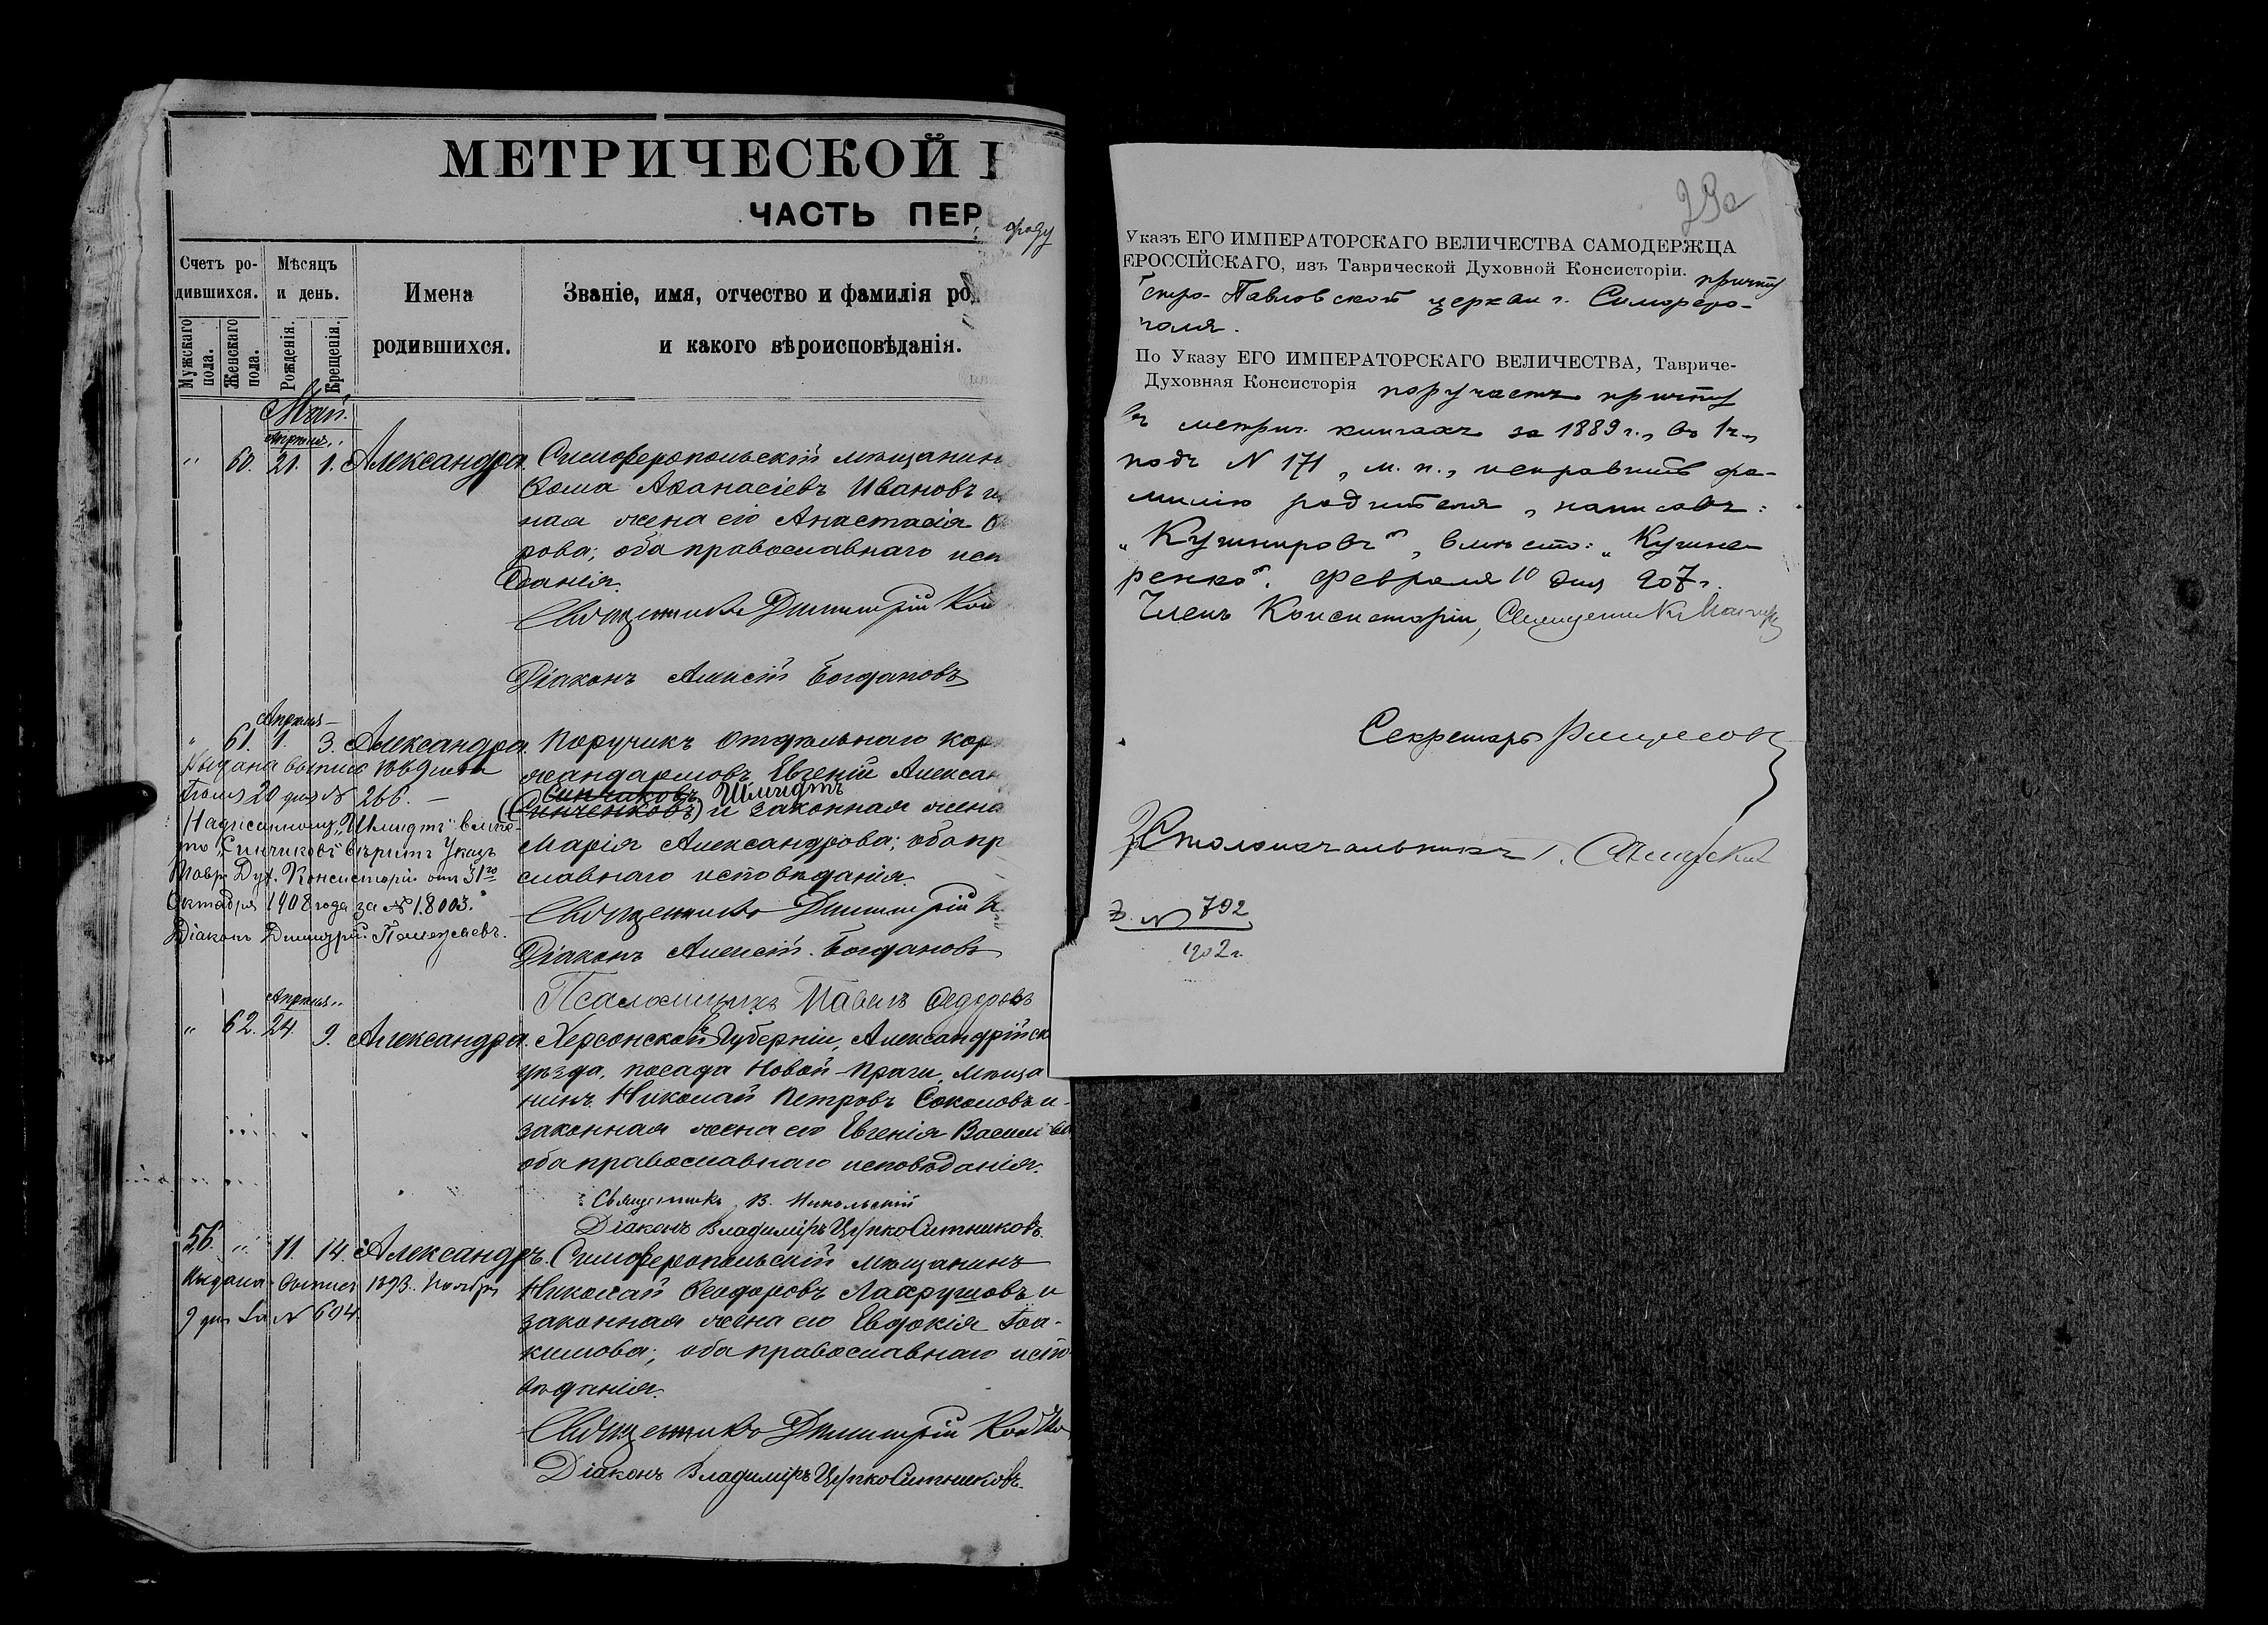 МЕТРИЧЕСКОЙ
ЧАСТЬ ПЕР
Счетъ ро-
дившихся.
Мужскаго пола.
Женскаго пола.
Мѣсяцъ
и день.
Рожденія.
Крещенія.
Имена
родившихся.
Званіе, имя, отчество и фамилія ро
и какого вѣроисповѣданія.
Май.
Апрѣля
" 60. 21. 1. Александра.
Симферопольскій мѣщанин
Ѳома Аѳанасіевъ Ивановъ и
ная жена его Анастасія
рова; оба православнаго исп
данія.
Священникъ Димитрій Кой
Діаконъ Алексій Богдановъ
Апрѣля
" 61. 1. 3. Александра.
Выдана выпись
20 дня № 266. —
Надписанному "Шмидтъ" вмѣс-
то "Синчиковъ" вѣрить Указъ
Тавр. Дух. Консисторіи отъ 31го
Октября 1908 года за № 18003."
Діаконъ Димитрій
Поручикъ Отдѣльнаго кор
жандармовъ Евгеній Алексан
Синчиковъ Шмидтъ
(Синченковъ) и законная жена
Марія Александрова; оба пр
славнаго исповѣданія.
Священникъ Димитрій К
Діаконъ Алексій Богдановъ
Псаломщикъ Павелъ Ѳедоровъ
Апрѣля
" 62. 24 9. Александра.
Херсонской Губерніи, Александрійск
уѣзда, посада Новой-Праги, мѣща
нинъ Николай Петровъ Соколовъ и
законная жена его Евгенія Васильев
оба православнаго исповѣданія.
Священникъ В. Никольскій
Діаконъ Владиміръ Ситниковъ.
56. " 11. 14. Александръ.
Выдана выпись 1893. Ноября
9 дня за № 604
Симферопольскій мѣщанинъ
Николай Ѳеодоровъ Лахрушовъ и
законная жена его Евдокія Іоа-
кимова; оба православнаго испо
вѣданія.
Священникъ Димитрій Кой
Діаконъ Владиміръ Ситниковъ.
Указъ ЕГО ИМПЕРАТОРСКАГО ВЕЛИЧЕСТВА САМОДЕРЖЦА
ЕРОССІЙСКАГО, изъ Таврической Духовной Консисторіи. причту
Петро-Павловской церкви г. Симферо-
поля.
По Указу ЕГО ИМПЕРАТОРСКАГО ВЕЛИЧЕСТВА, Тавриче-
Духовная Консисторія поручаетъ причту
въ метрич. книгахъ за 1889 г., во 1 ч.,
подъ N 171, м. п., исправить фа-
милію родителя, написавъ:
"Кушнировъ", вмѣсто: "Кушне-
ренко". Февраля 10 дня 907 г.
Членъ Консисторіи, Священникъ
Секретарь
Столоначальникъ
N 792